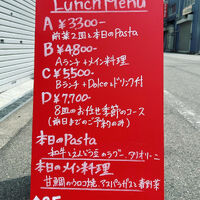 Lunch Menu
A ¥3300-
前菜2皿と本日のPasta
B ¥4800-
Aランチ+メイン料理
C ¥5500-
Bランチ+Dolceとドリンク付
D ¥7,700-
8皿のお任せ季節のコース
(前日までのご予約のみ)
本日のPasta
和牛とえんどう豆のラグー、タリオリーニ
本日のメイン料理
甘鯛のうろこ焼、アスパラガスと春野菜